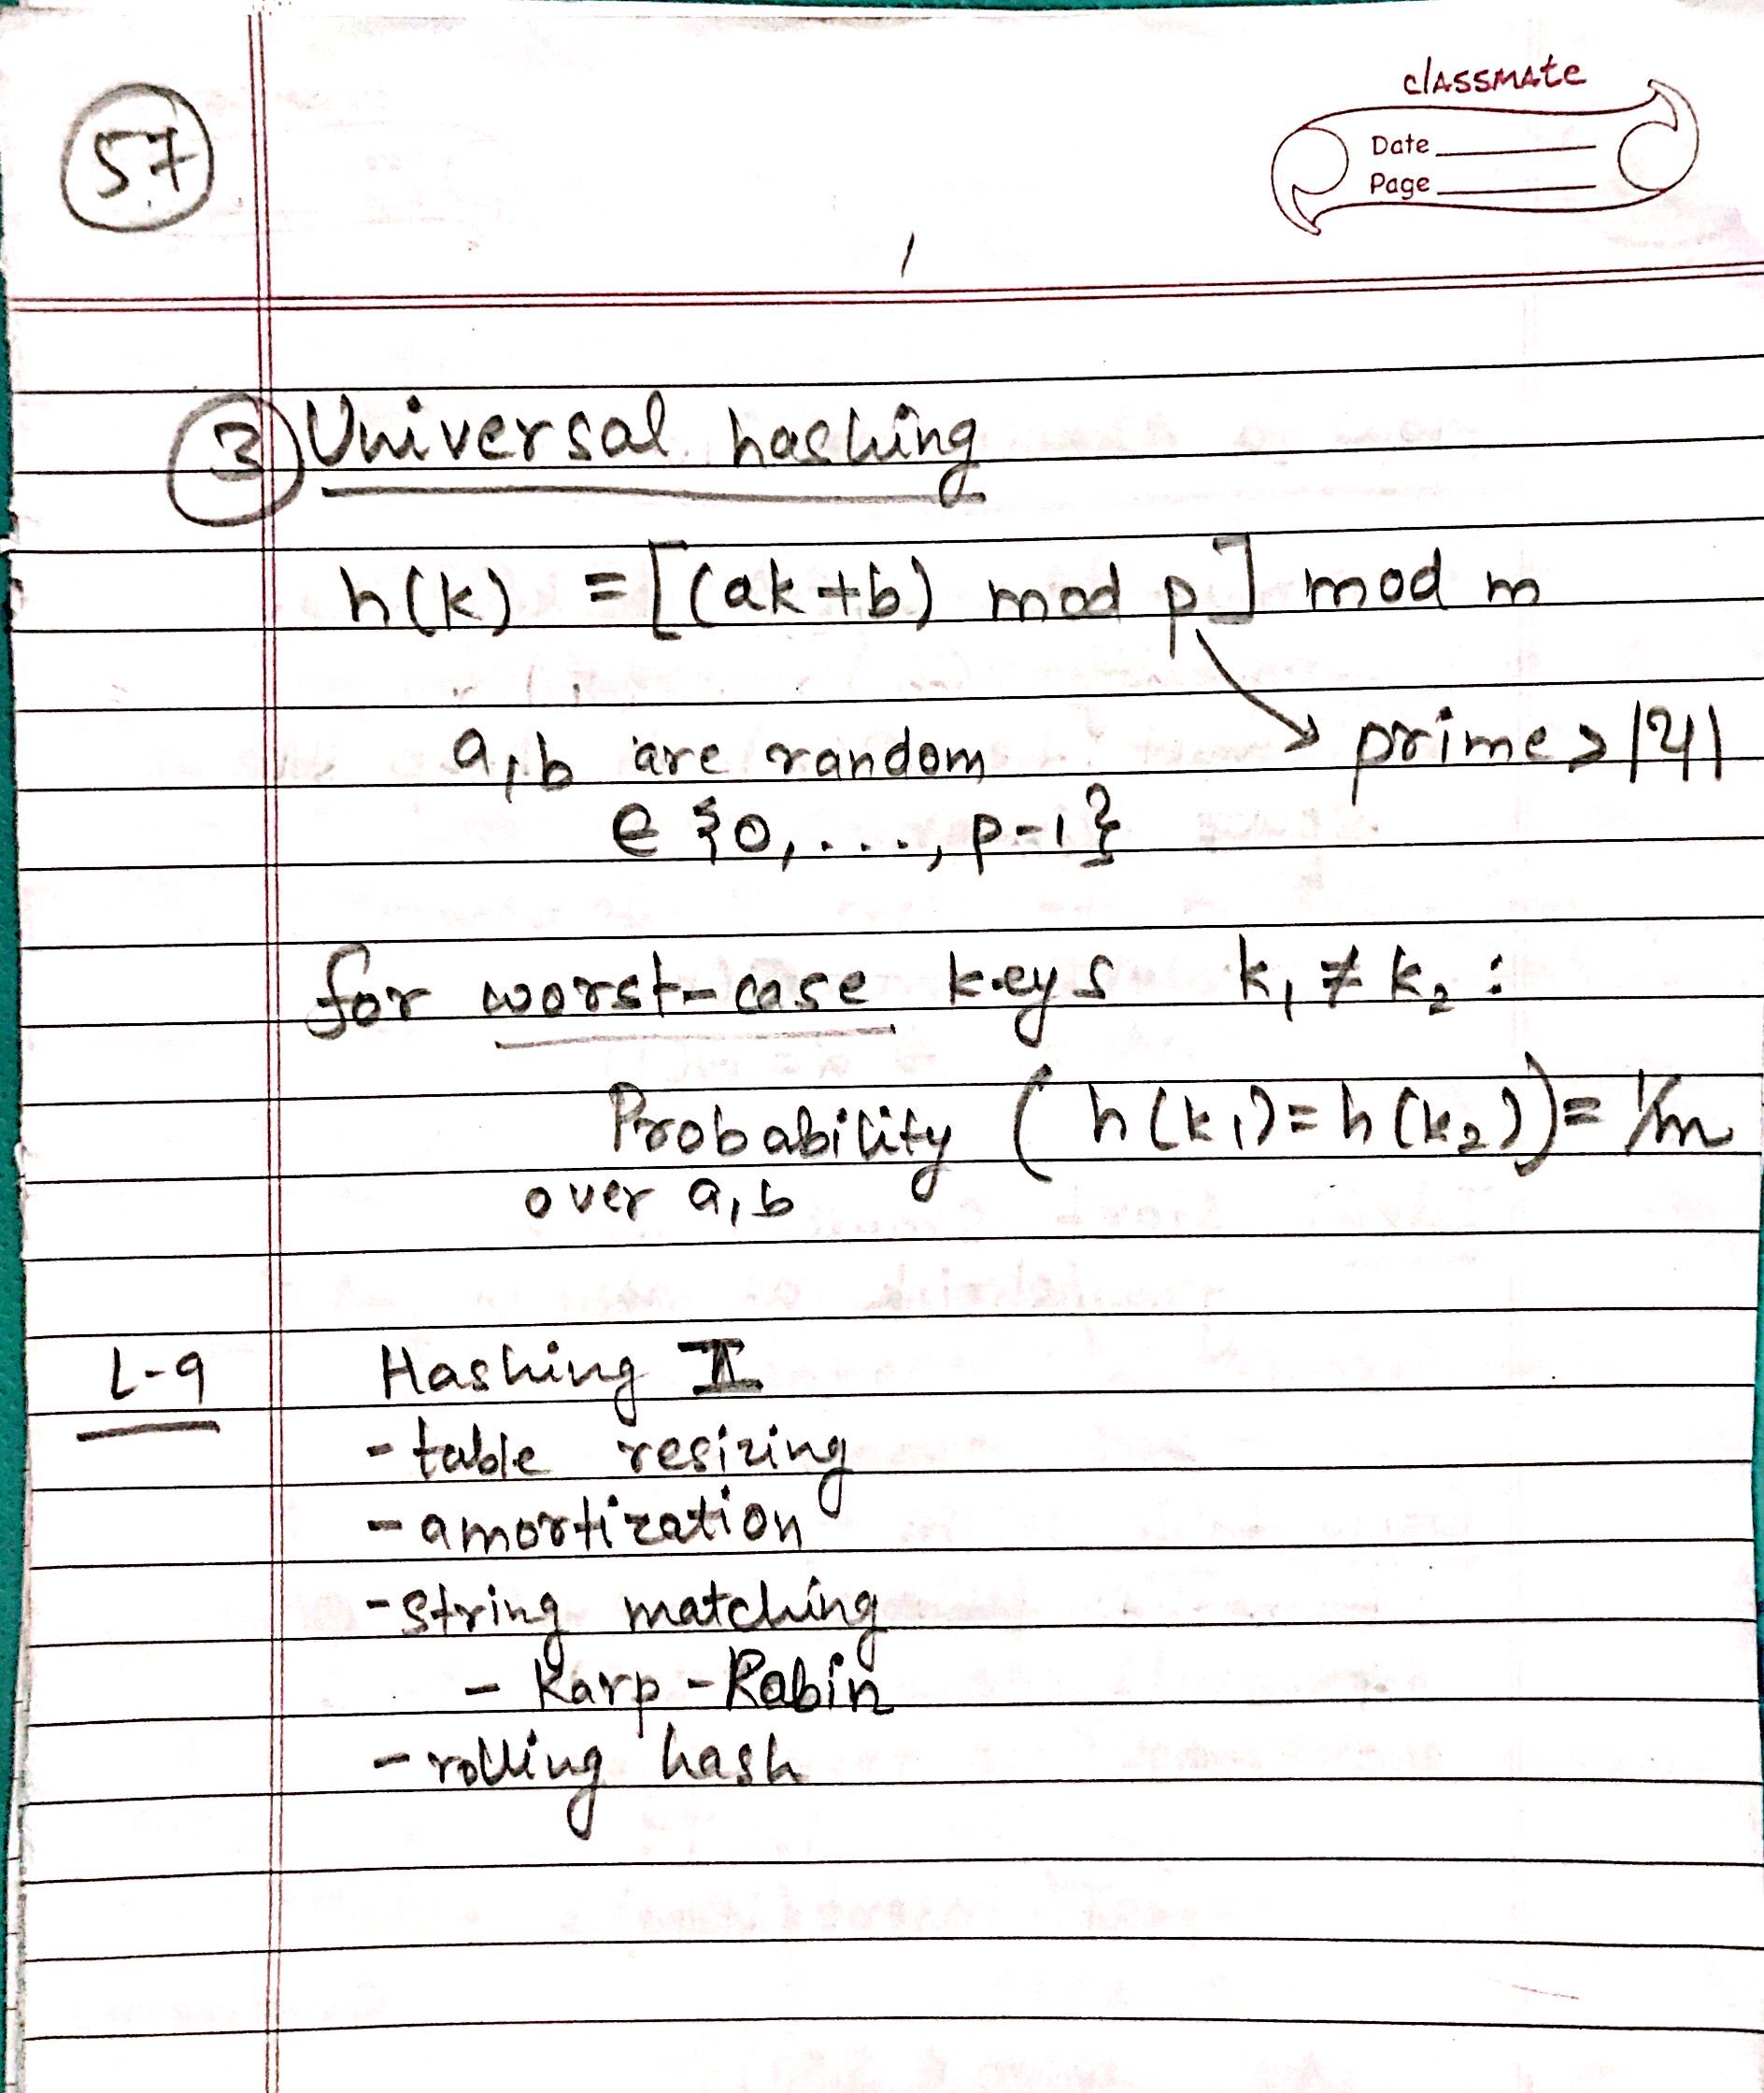 57
classmate
Date
Page
3 Universal hashing
h(k) = [(ak+b) mod p] mod m
a,b are random → prime > |U|
∈ {0, ..., p-1}
for worst-case keys k₁ ≠ k₂ :
Probability ( h(k₁) = h(k₂) ) = 1/m
over a,b
L-9 Hashing II
- table resizing
- amortization
- string matching
- Karp-Rabin
- rolling hash